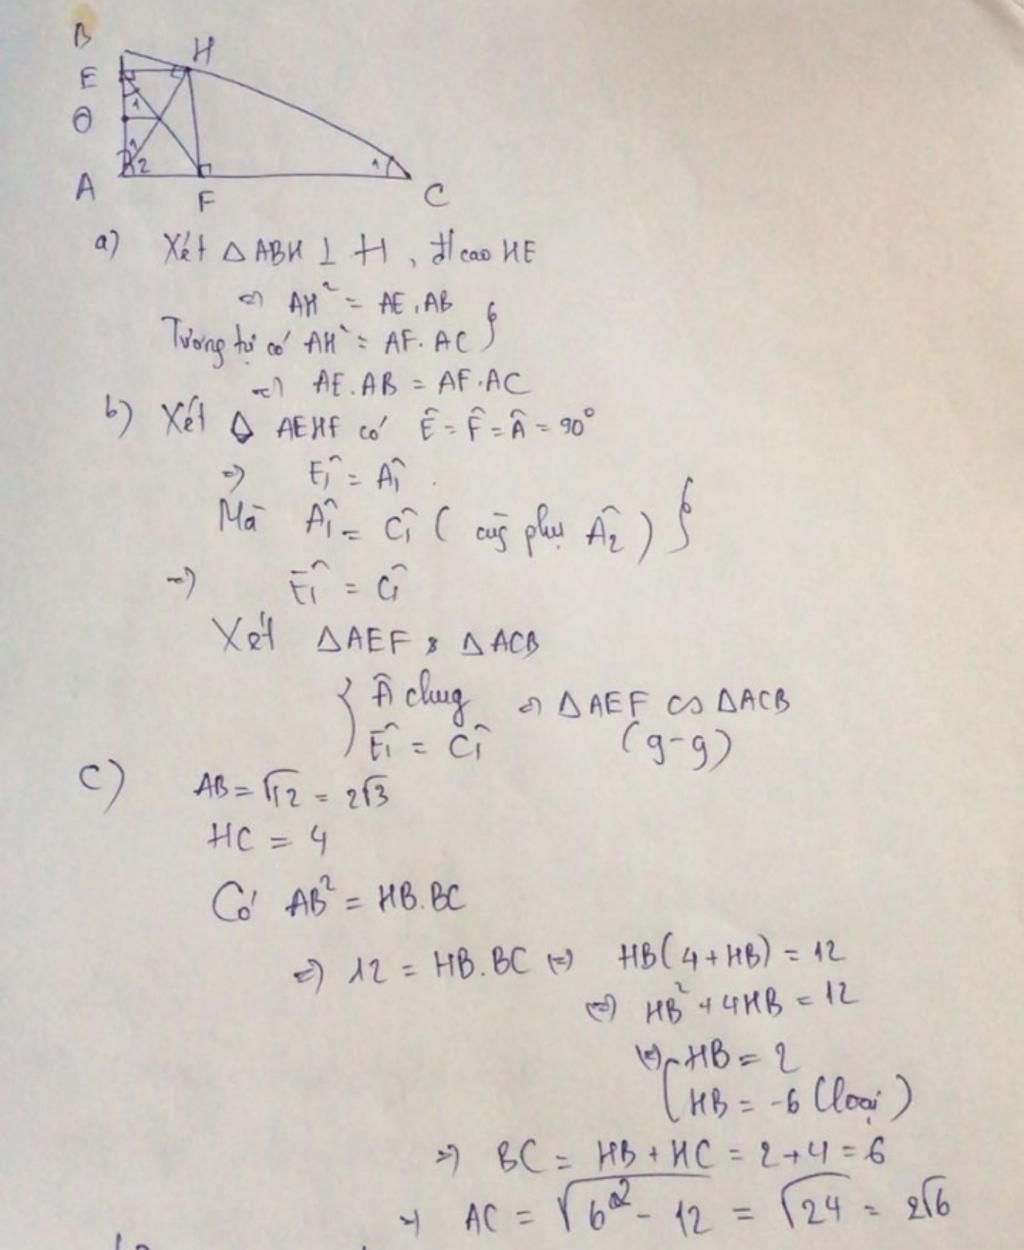 B
H
E
1
O
1
2
1
A
F
C
a) Xét △ABH ⊥ H, đ/cao HE
=> AH² = AE.AB
Tương tự có AH² = AF.AC }
=> AE.AB = AF.AC
b) Xét ◊ AEHF có Ê = F̂ = Â = 90°
=> Ê₁ = Â₁
Mà Â₁ = Ĉ₁ (cùg phụ Â₂) }
=> Ê₁ = Ĉ₁
Xét △AEF & △ACB
{ Â chug => △AEF ∽ △ACB
Ê₁ = Ĉ₁ (g-g)
c) AB = √12 = 2√3
HC = 4
Có AB² = HB.BC
=> 12 = HB.BC <=> HB(4+HB) = 12
<=> HB² + 4HB = 12
<=> [ HB = 2
HB = -6 (loại)
=> BC = HB + HC = 2+4 = 6
=> AC = √6² - 12 = √24 = 2√6